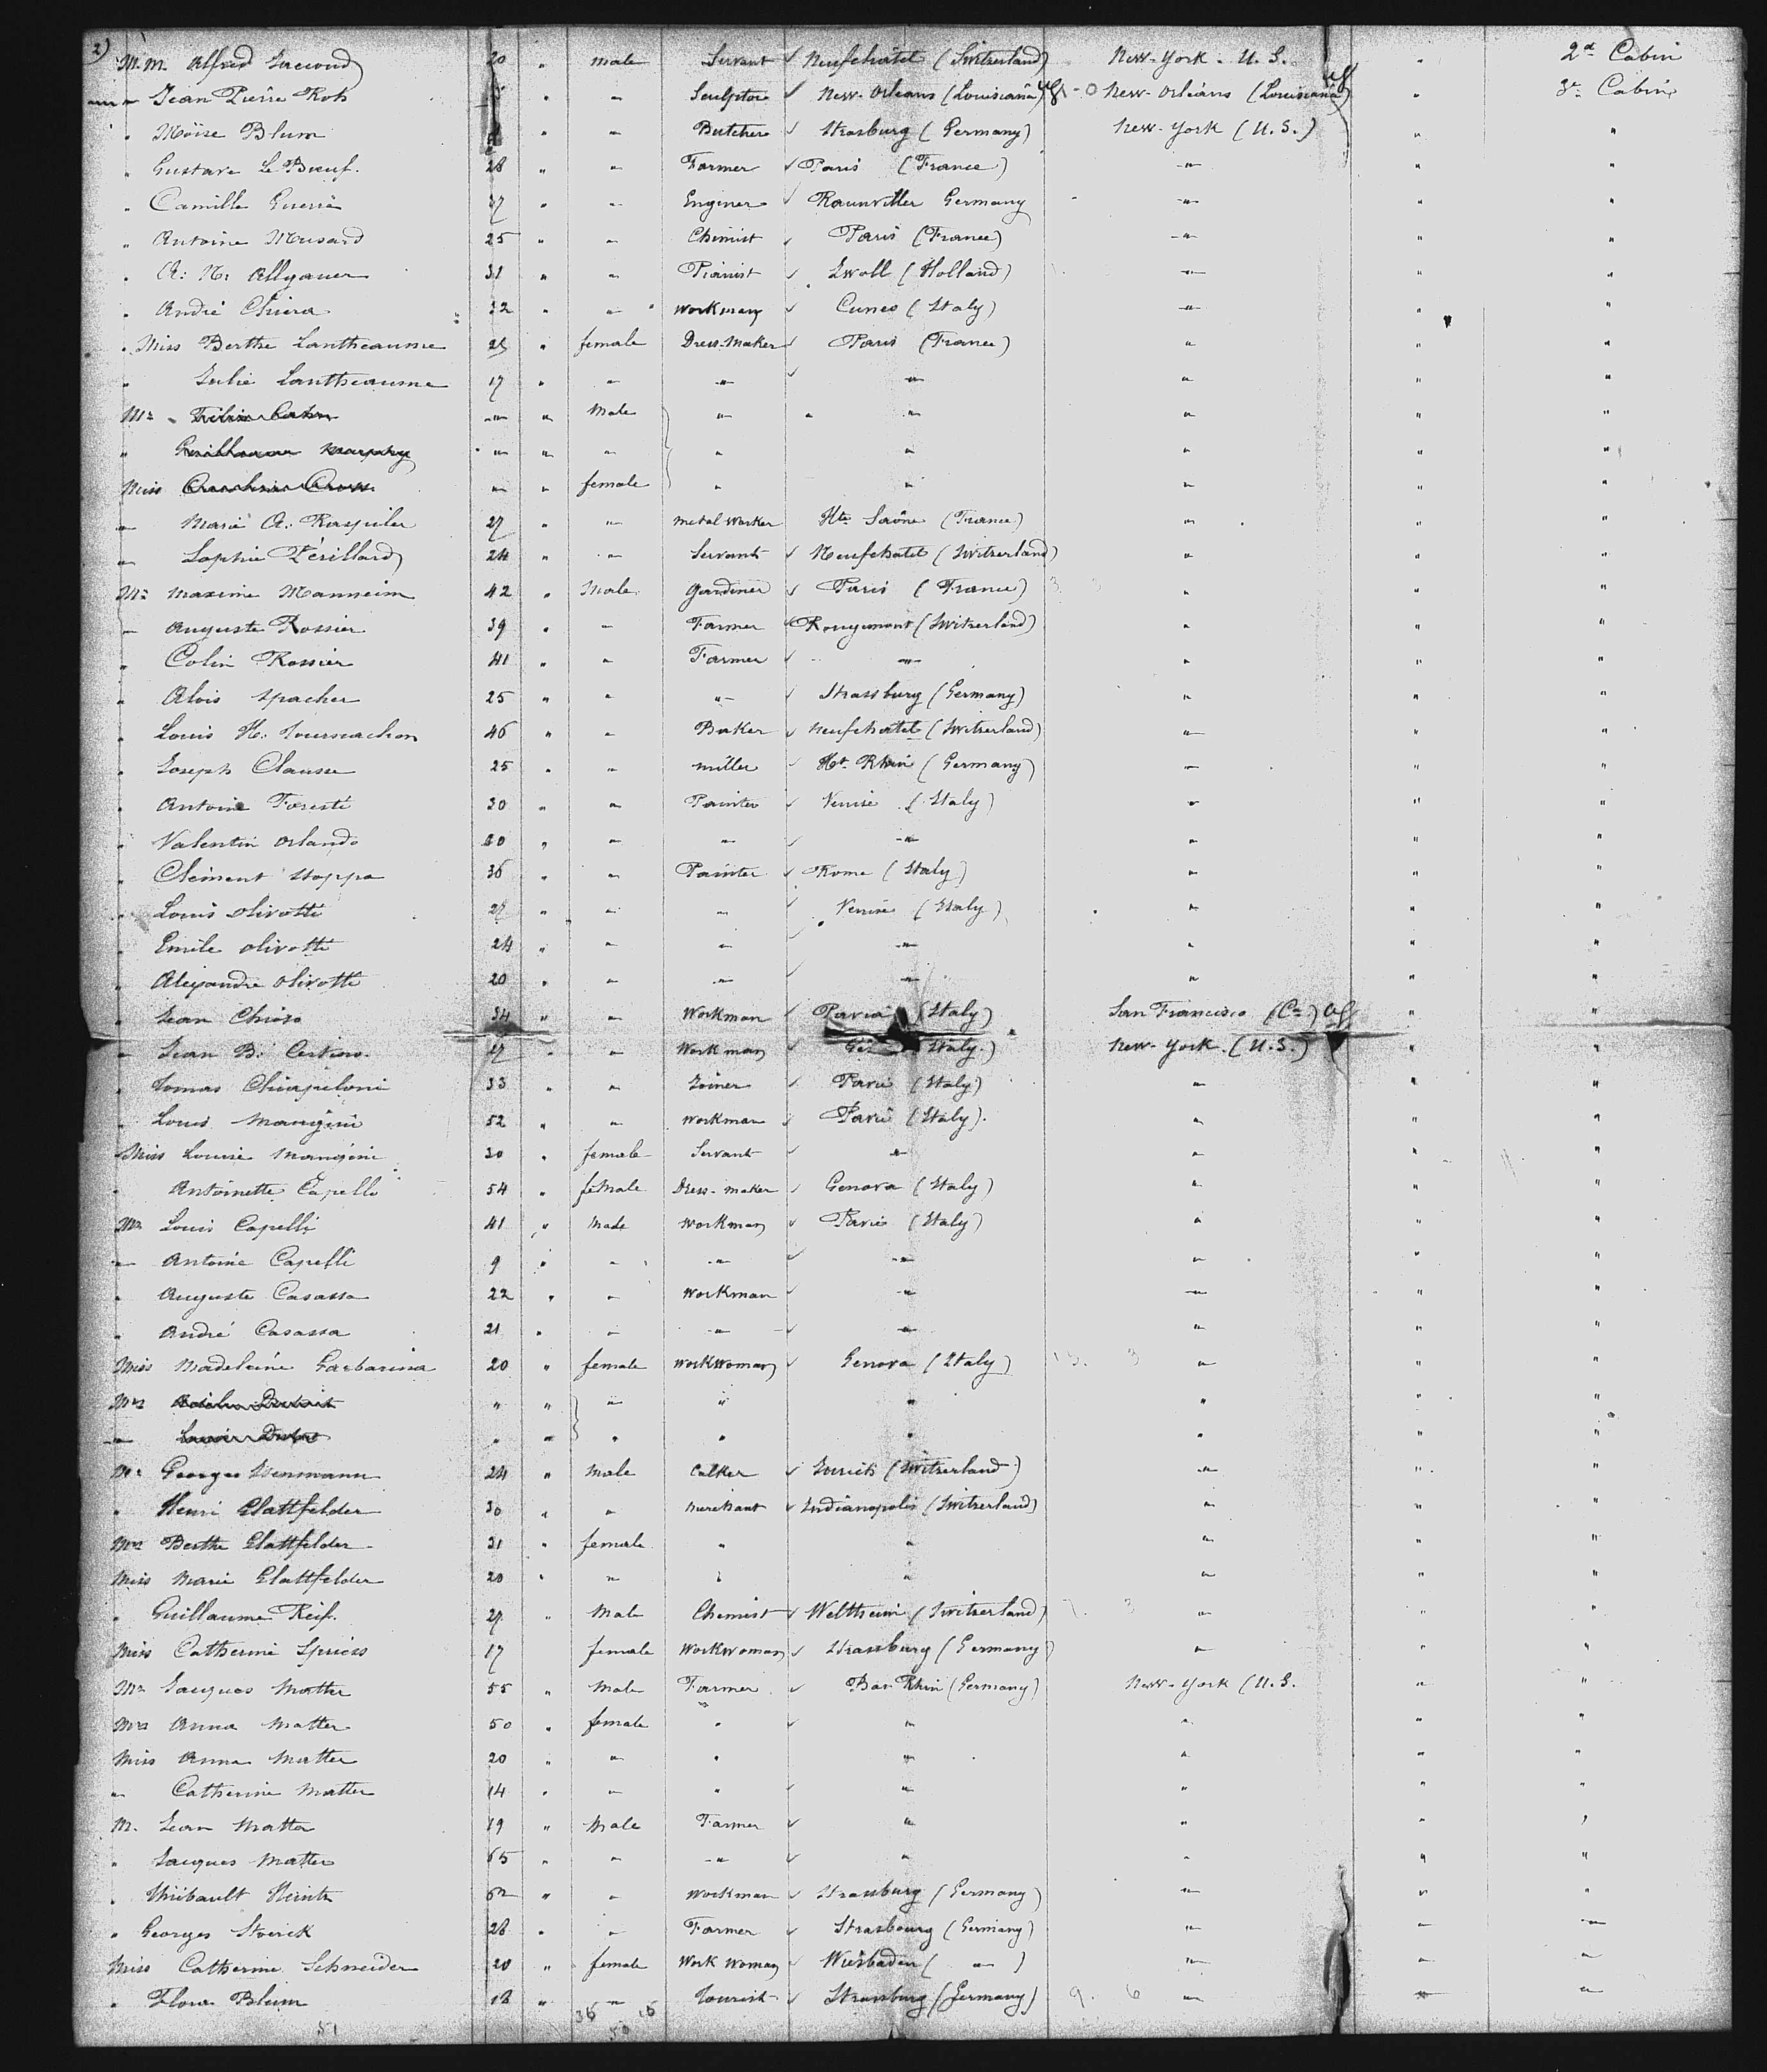 2)
M.M. Alfred 20 " male Servant ✓ Neufchâtel (Switzerland) New-York. U.S. " 2d Cabin
" Jean Pierre Rob " " Sculptor ✓ New-Orleans (Louisiana) New-Orleans (Louisiana) " 3e Cabin
" Moïse Blum " " Butcher ✓ Strasburg (Germany) New-York (U.S.) " "
" Gustave Le Bœuf. 28 " " Farmer ✓ Paris (France) " " "
" Camille 37 " " Enginer ✓ Germany " " "
" Antoine Musard 25 " " Chimist ✓ Paris (France) " " "
" A: N: Allgauer 31 " " Pianist ✓ Zwoll (Holland) " " "
" André Chiera 32 " " Workman ✓ Cuneo (Italy) " " "
" Miss Berthe Lantheaume 25 " female Dress-Maker ✓ Paris (France) " " "
" Julie Lantheaume 17 " " " ✓ " " " "
Mr " " Male " " " " "
" Guillaume Murphy " " " " " " " "
Miss " " female " " " " "
" Marie A: Raspiler 27 " " metal Worker Hte Saône (France) " " "
" Sophie Périllard 24 " " Servant ✓ Neufchatel (Switzerland) " " "
Mr Maxime Manneim 42 " Male Gardiner ✓ Paris (France) " " "
" Auguste Rossier 39 " " Farmer ✓ Rougemont (Switzerland) " " "
" Colin Rossier 41 " " Farmer ✓ " " " "
" Alois Spacher 25 " " " ✓ Strassburg (Germany) " " "
" Louis H: Tournachon 46 " " Baker ✓ Neufchatel (Switzerland) " " "
" Joseph Clausse 25 " " miller ✓ Ht Rhin (Germany) " " "
" Antoine Foresti 30 " " Painter ✓ Venise (Italy) " " "
" Valentin Orlando 20 " " " ✓ " " " "
" Clément Stoppa 36 " " Painter ✓ Rome (Italy) " " "
" Louis Olivotti 27 " " " ✓ Venise (Italy) " " "
" Emile Olivotti 24 " " " ✓ " " " "
" Alexandre Olivotti 20 " " " ✓ " " " "
" Jean Chiesa 34 " " Workman ✓ Pavia (Italy) San Francisco (Ca) " "
" Jean B: 17 " " Workman ✓ Italy.) New-York. (U.S.) " "
" Tomas Chiapeloni 33 " " Joiner ✓ Pavie (Italy) " " "
" Louis Mangini 52 " " Workman ✓ Pavie (Italy). " " "
Miss Louise Mangini 30 " female Servant ✓ " " " "
" Antoinette Capelli 54 " female Dress-maker ✓ Genova (Italy) " " "
Mr Louis Capelli 41 " Male Workman ✓ Pavie (Italy) " " "
" Antoine Capelli 9 " " " ✓ " " " "
" Auguste Casassa 22 " " Workman ✓ " " " "
" André Casassa 21 " " " ✓ " " " "
Miss Madeleine Garbarina 20 " female Workwoman ✓ Genova (Italy) " " "
Mrs " " " " " " " "
" " " " " " " " "
Mr Georges 24 " Male Calker ✓ Zurich (Switzerland) " " "
" Henri Glattfelder 30 " " Merchant ✓ Indianapolis (Switzerland) " " "
Mrs Berthe Glattfelder 31 " female " " " " "
Miss Marie Glattfelder 20 " " " " " " "
" Guillaume Reif. 27. " Male Chemist ✓ Weltheim (Switzerland) " " "
Miss Catherine Spiess 17 female Workwoman ✓ Strassburg (Germany) " " "
Mr Jacques Matter 55 " Male Farmer ✓ Bas Rhin (Germany) New-York (U.S. " "
Mrs Anna Matter 50 " female " ✓ " " " "
Miss Anna Matter 20 " " " " " " "
" Catherine Matter 14 " " " ✓ " " " "
M. Jean Matter 19 " Male Farmer ✓ " " " "
" Jacques Matter 65 " " " ✓ " " " "
" Thiébault Heintz 62 " " Workman ✓ Strassburg (Germany) " " "
" Georges Stoerck 28 " " Farmer ✓ Strasbourg (Germany) " " "
Miss Catherine Schneider 20 " female Work Woman ✓ Wiesbaden ( " ) " " "
" Flora Blum 18 " " Tourist ✓ Strassburg (Germany) 9. 6 " " "
51 36 15